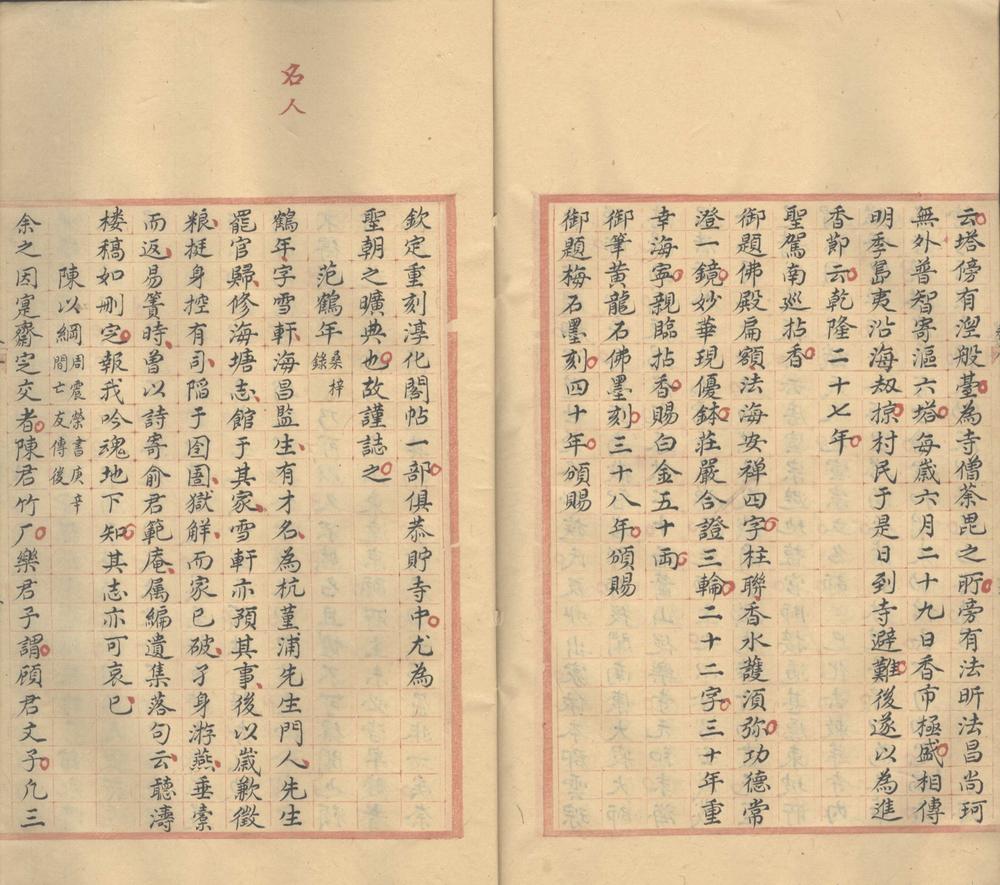 云塔傍有湼般臺為寺僧荼毘之所旁有法昕法昌尚珂
無外普智寄漚六塔每歲六月二十九日香市極盛相傳
明季島夷沿海刼掠村民于是日到寺避難後遂以為進
香節云乾隆二十七年
聖駕南巡拈香
御題佛殿扁額法海安禪四字柱聯香水護須弥功德常
澄一鏡妙華現優鉢莊嚴合證三輪二十二字三十年重
幸海寧親臨拈香賜白金五十両
御筆黃龍石佛墨刻三十八年頒賜
御題梅石墨刻四十年頒賜
欽定重刻淳化閣帖一部俱恭貯寺中尤為
聖朝之曠典也故謹誌之
名人
范鶴年桑梓錄
鶴年字雪軒海昌監生有才名為杭堇浦先生門人先生
罷官歸修海塘志館于其家雪軒亦預其事後以歲歉徵
粮挺身控有司陷于囹圄獄解而家已破孑身游燕垂橐
而返易簀時曾以詩寄俞君範庵属編遺集落句云聽濤
楼稿如刪定報我吟魂地下知其志亦可哀已
陳以綱周震榮書庚辛間亡友傳後
余之因寔齋定交者陳君竹厂樂君子謂顾君文子凡三